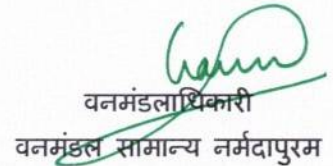 वनमंडलाधिकारी
वनमंडल सामान्य नर्मदापुरम